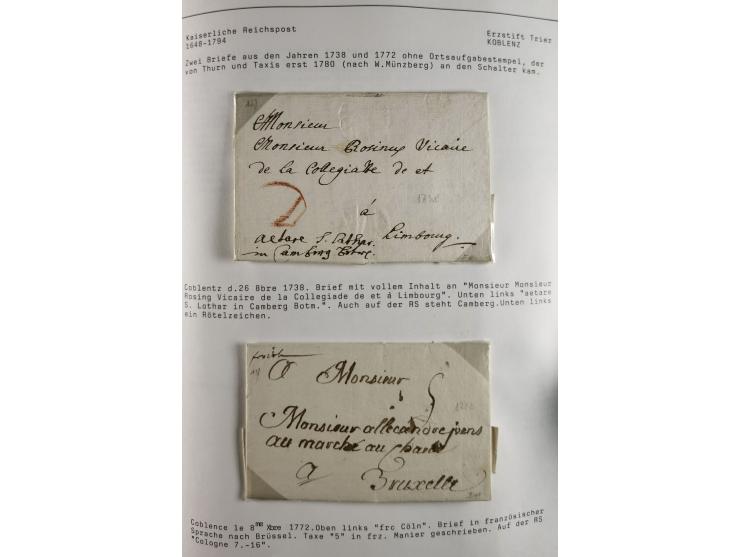 Kaiserliche Reichspost
1648-1794
Erzstift Trier
KOBLENZ
Zwei Briefe aus den Jahren 1738 und 1772 ohne Ortsaufgabestempel, der
von Thurn und Taxis erst 1780 (nach W.Münzberg) an den Schalter kam.
Monsieur
Monsieur Rosinus Vicaire
de la Collegiatte de et
1738
á
Limbourg.
aetare S. Lothar.
in Camberg Botm.
Coblentz d.26 8bre 1738. Brief mit vollem Inhalt an "Monsieur Monsieur
Rosing Vicaire de la Collegiade de et á Limbourg". Unten links "aetare
S. Lothar in Camberg Botm.". Auch auf der RS steht Camberg.Unten links
ein Rötelzeichen.
A Monsieur
5
Monsieur allecandre
au marché au
a Bruxelle
Coblence le 8me Xbre 1772.Oben links "frc Cöln". Brief in französischer
Sprache nach Brüssel. Taxe "5" in frz. Manier geschrieben. Auf der RS
"Cologne 7.-16".